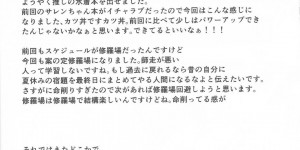 ようやく推しの水着本を出せました。
前回のサレンちゃん本がイチャラブだったので今回はこんな感じに
なりました。カツ丼ですカツ丼。前回に比べて少しはパワーアップでき
たんじゃないかなぁと思います。できてるといいなぁ！！！！
前回もスケジュールが修羅場だったんですけど
今回も案の定修羅場になりました。師走が悪い
人って学習しないですね。もし過去に戻れるなら昔の自分に
夏休みの宿題を最終日にまとめてやる人間になるなよと伝えたいです。
さすがに命削りすぎたので次があれば修羅場回避しようと思います。
修羅場は修羅場で結構楽しいんですけどね。命削ってる感が
それではまたどこかで